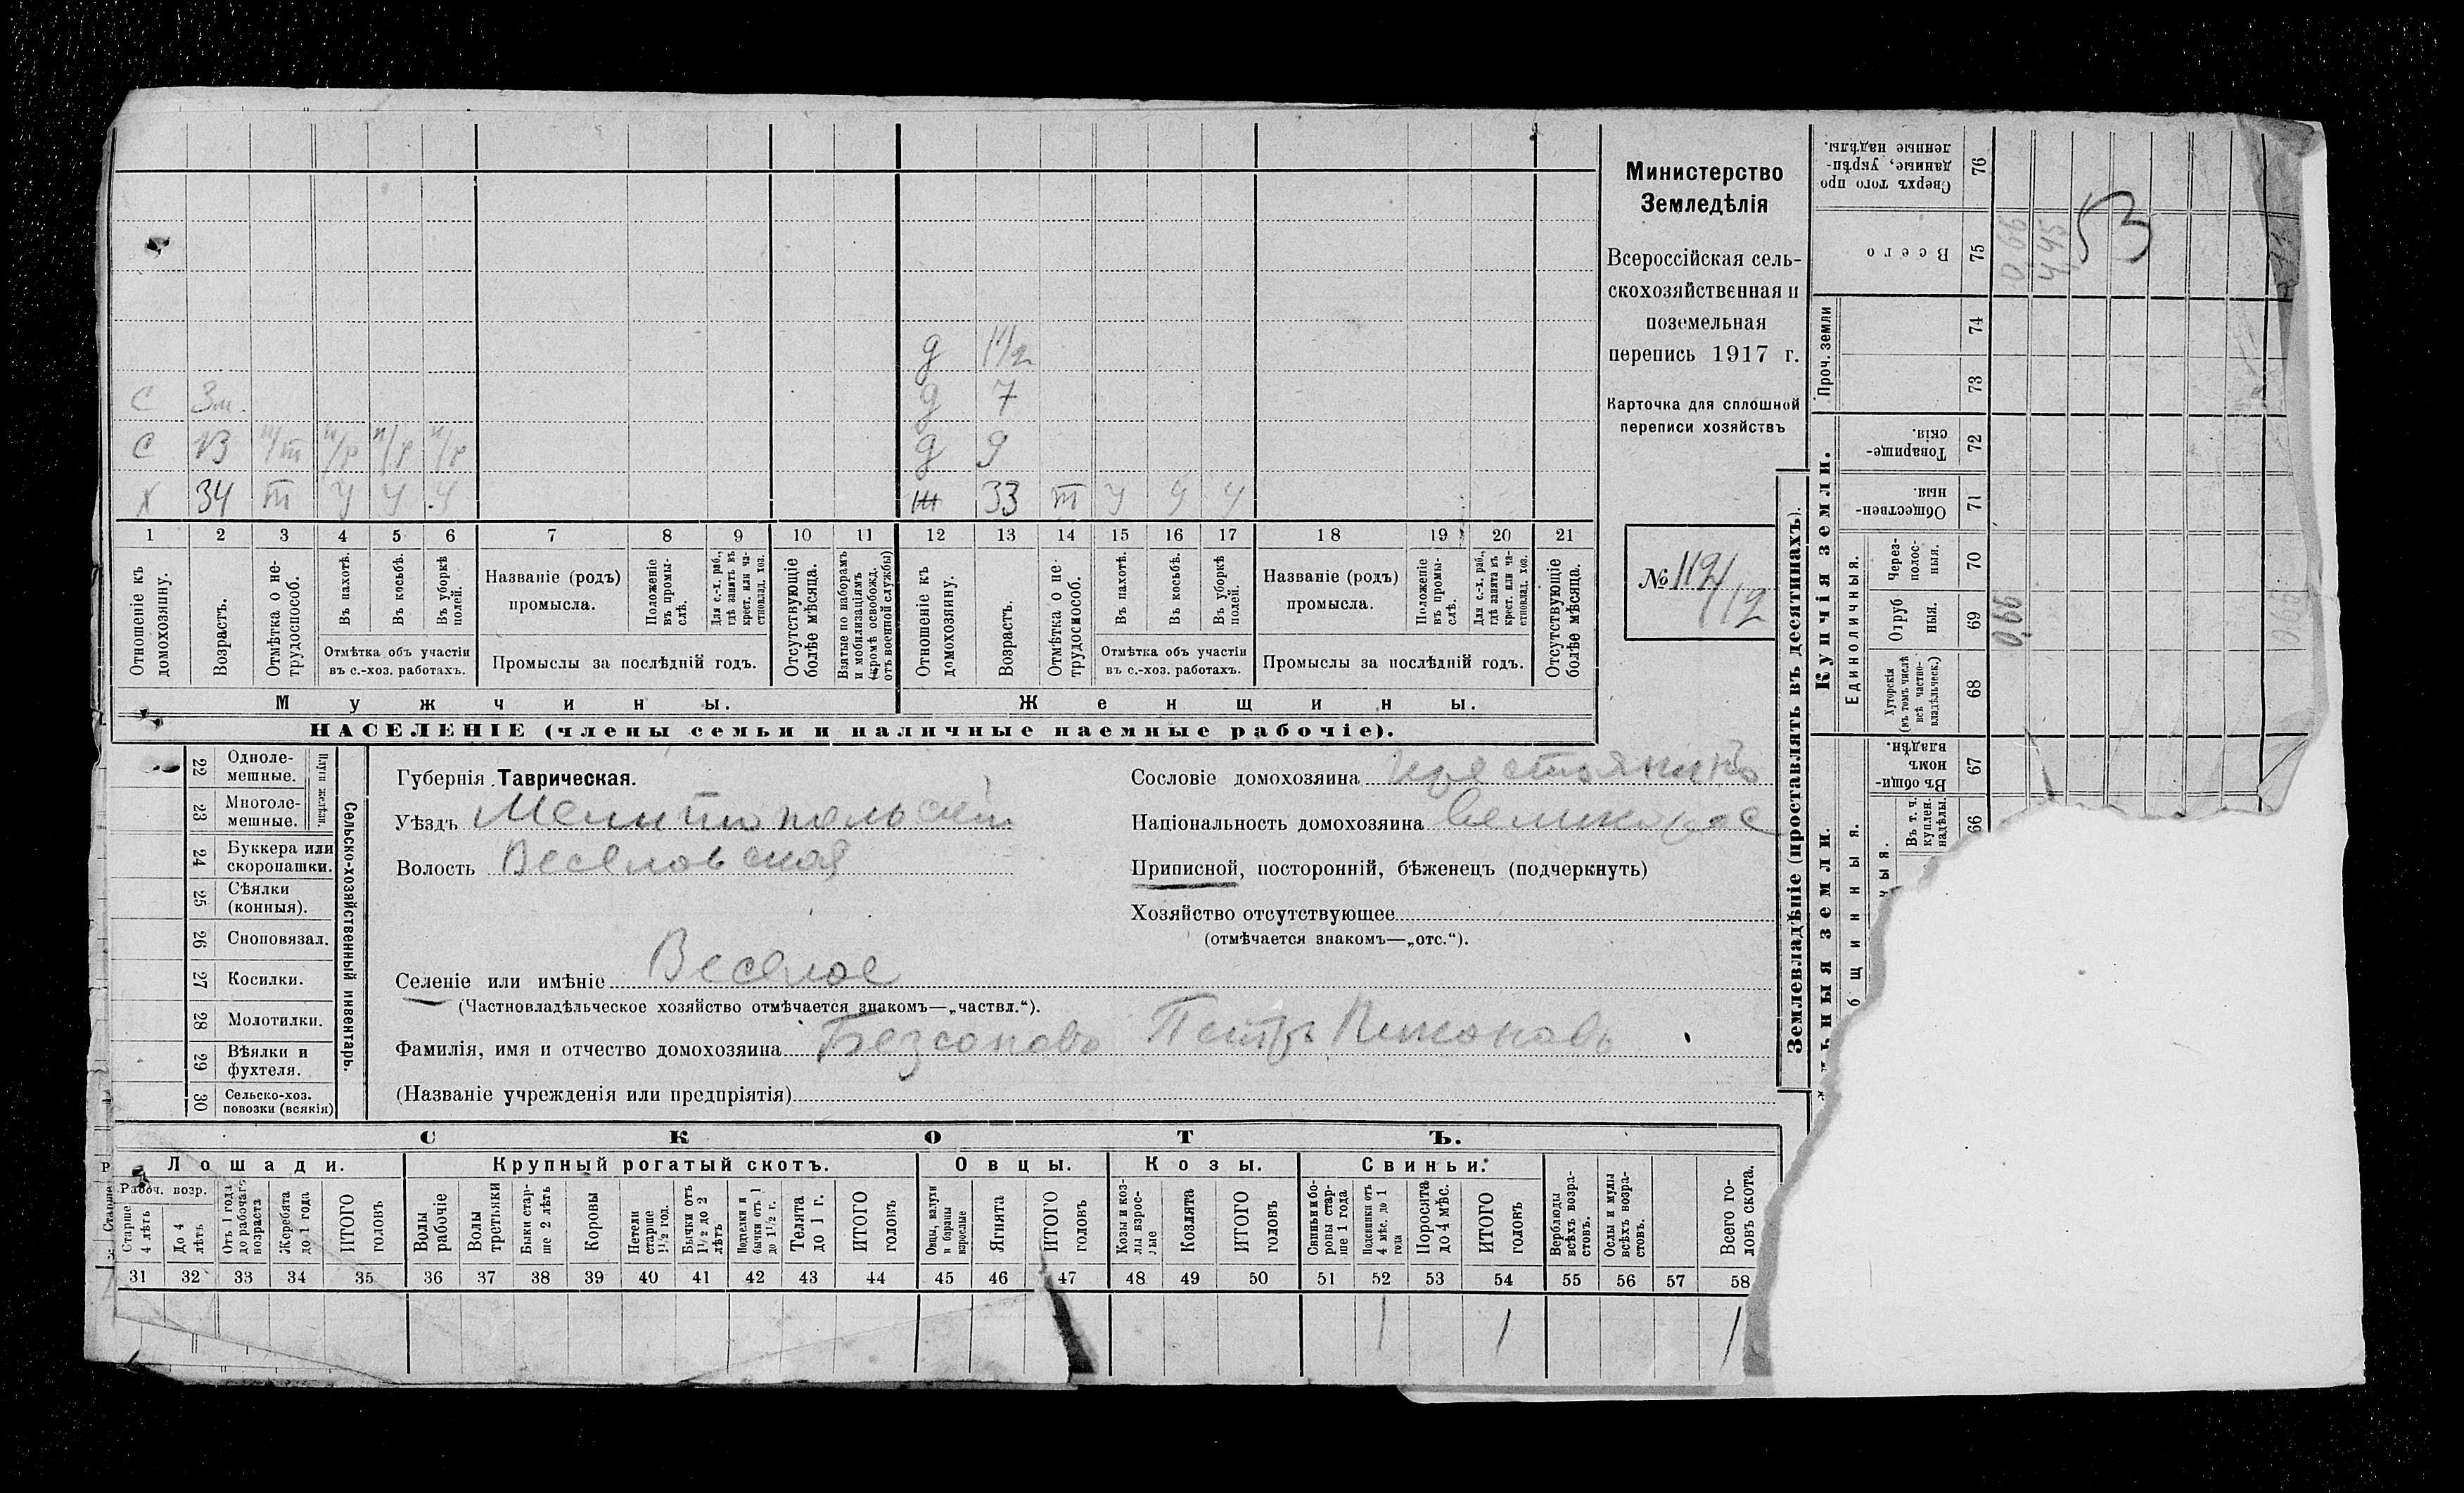 Министерство
Земледѣлія
Всероссійская сель-
скохозяйственная и
поземельная
перепись 1917 г.
Карточка для сплошной
переписи хозяйствъ
№ 1121/12
д 1 1/2
С 3м. д 7
С 13 н/т н/р н/р н/р д 9
Х 34 т ч ч ч ж 33 т ч ч ч
1 2 3 4 5 6 7 8 9 10 11 12 13 14 15 16 17 18 19 20 21
Отношеніе къ домохозяину.
Возрастъ.
Отмѣтка о не-трудоспособ.
Въ пахотѣ.
Въ косьбѣ.
Въ уборкѣ полей.
Отмѣтка объ участіи
въ с.-хоз. работахъ.
Названіе (родъ)
промысла.
Положеніе въ промы-слѣ.
Для с.-х. раб., гдѣ занятъ въ крест. или ча-стновлад. хоз.
Промыслы за послѣдній годъ.
Отсутствующіе болѣе мѣсяца.
Взятые по наборамъ и мобилизаціямъ (кромѣ освобожд. отъ военной службы)
Отношеніе къ домохозяину.
Возрастъ.
Отмѣтка о не-трудоспособ.
Въ пахотѣ.
Въ косьбѣ.
Въ уборкѣ полей.
Отмѣтка объ участіи
въ с.-хоз. работахъ.
Названіе (родъ)
промысла.
Положеніе въ промы-слѣ.
Для с.-х. раб., гдѣ занята въ крест. или ча-стновлад. хоз.
Промыслы за послѣдній годъ.
Отсутствующіе болѣе мѣсяца.
Мужчины. Женщины.
НАСЕЛЕНІЕ (члены семьи и наличные наемные рабочіе).
22 Одноле-мешные.
23 Многоле-мешные.
Плуги желѣзн.
24 Буккера или скоропашки.
25 Сѣялки (конныя).
26 Сноповязал.
27 Косилки.
28 Молотилки.
29 Вѣялки и фухтеля.
30 Сельско-хоз. повозки (всякія)
Сельско-хозяйственный инвентарь.
Губернія Таврическая.
Уѣздъ Мелитопольскій
Волость Веселовская
Селеніе или имѣніе Веселое
(Частновладѣльческое хозяйство отмѣчается знакомъ—„частвл.“).
Фамилія, имя и отчество домохозяина Безсоновъ Петръ
(Названіе учрежденія или предпріятія)
Сословіе домохозяина крестьянинъ
Національность домохозяина великорос
Приписной, посторонній, бѣженецъ (подчеркнуть)
Хозяйство отсутствующее
(отмѣчается знакомъ—„отс.“).
СКОТЪ.
Лошади. Крупный рогатый скотъ. Овцы. Козы. Свиньи.
Рабоч. возр.
Старше 4 лѣтъ
До 4 лѣтъ
Отъ 1 года до рабочаго возраста
Жеребята до 1 года
ИТОГО головъ
Волы рабочіе
Волы третьяки
Быки стар-ше 2 лѣтъ
Коровы
Нетели старше 1 1/2 год.
Бычки отъ 1 1/2 до 2 лѣтъ
Подтелки и бычки отъ 1 до 1 1/2 г.
Телята до 1 г.
ИТОГО головъ
Овцы, валухи и бараны взрослые
Ягнята
ИТОГО головъ
Козы и коз-лы взрос-лые
Козлята
ИТОГО головъ
Свиньи и бо-ровы стар-ше 1 года
Подсвинки отъ 4 мѣс. до 1 года
Поросята до 4 мѣс.
ИТОГО головъ
Верблюды всѣхъ возра-стовъ.
Ослы и мулы всѣхъ возра-стовъ.
Всего го-ловъ скота.
31 32 33 34 35 36 37 38 39 40 41 42 43 44 45 46 47 48 49 50 51 52 53 54 55 56 57 58
1 1 1
Землевладѣніе (проставлять въ десятинахъ).
Купчія земли.
Единоличныя.
Проч. земли
Сверхъ того про-данные, укрѣп-ленные надѣлы. 76
Всего 75 0,66 4,45
53
74
73
Товарище-скія. 72
Обществен-ныя. 71
Через-полос-ныя. 70
Отруб-ныя. 69 0,66 0,66
Хуторскія (въ томъ числѣ всѣ частно-владѣльческ.) 68
Въ общи-номъ владѣн. 67
Въ т. ч. куплен. надѣлы. 66